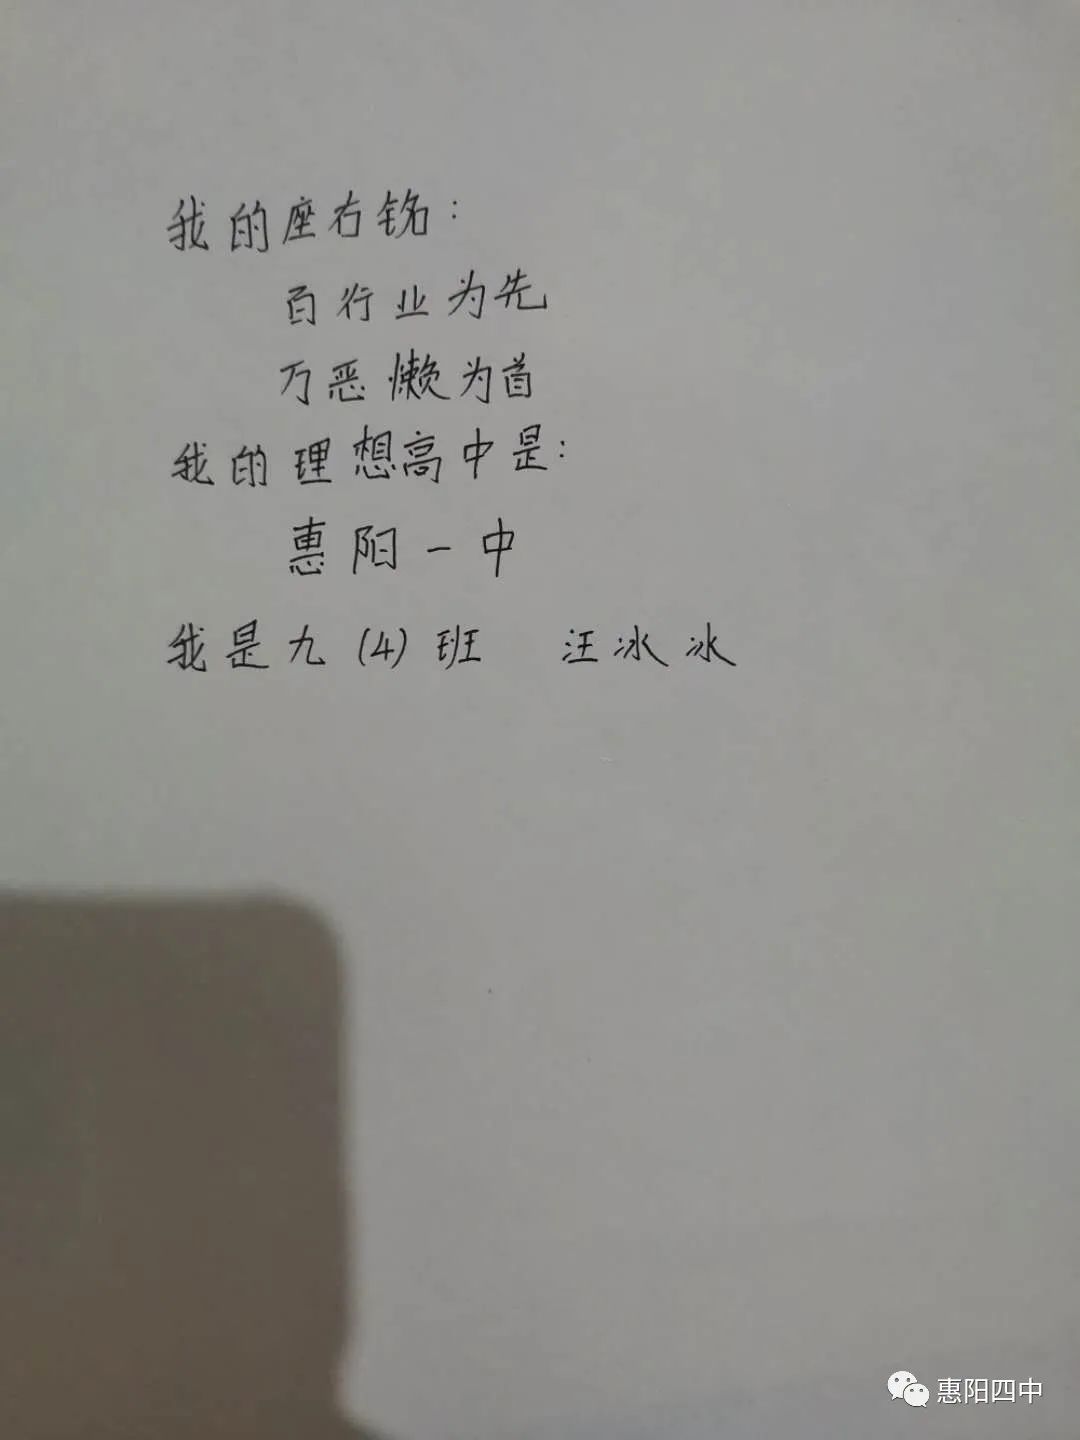 我的座右铭：
百行业为先
万恶懒为首
我的理想高中是：
惠阳一中
我是九（4）班 汪冰冰
惠阳四中